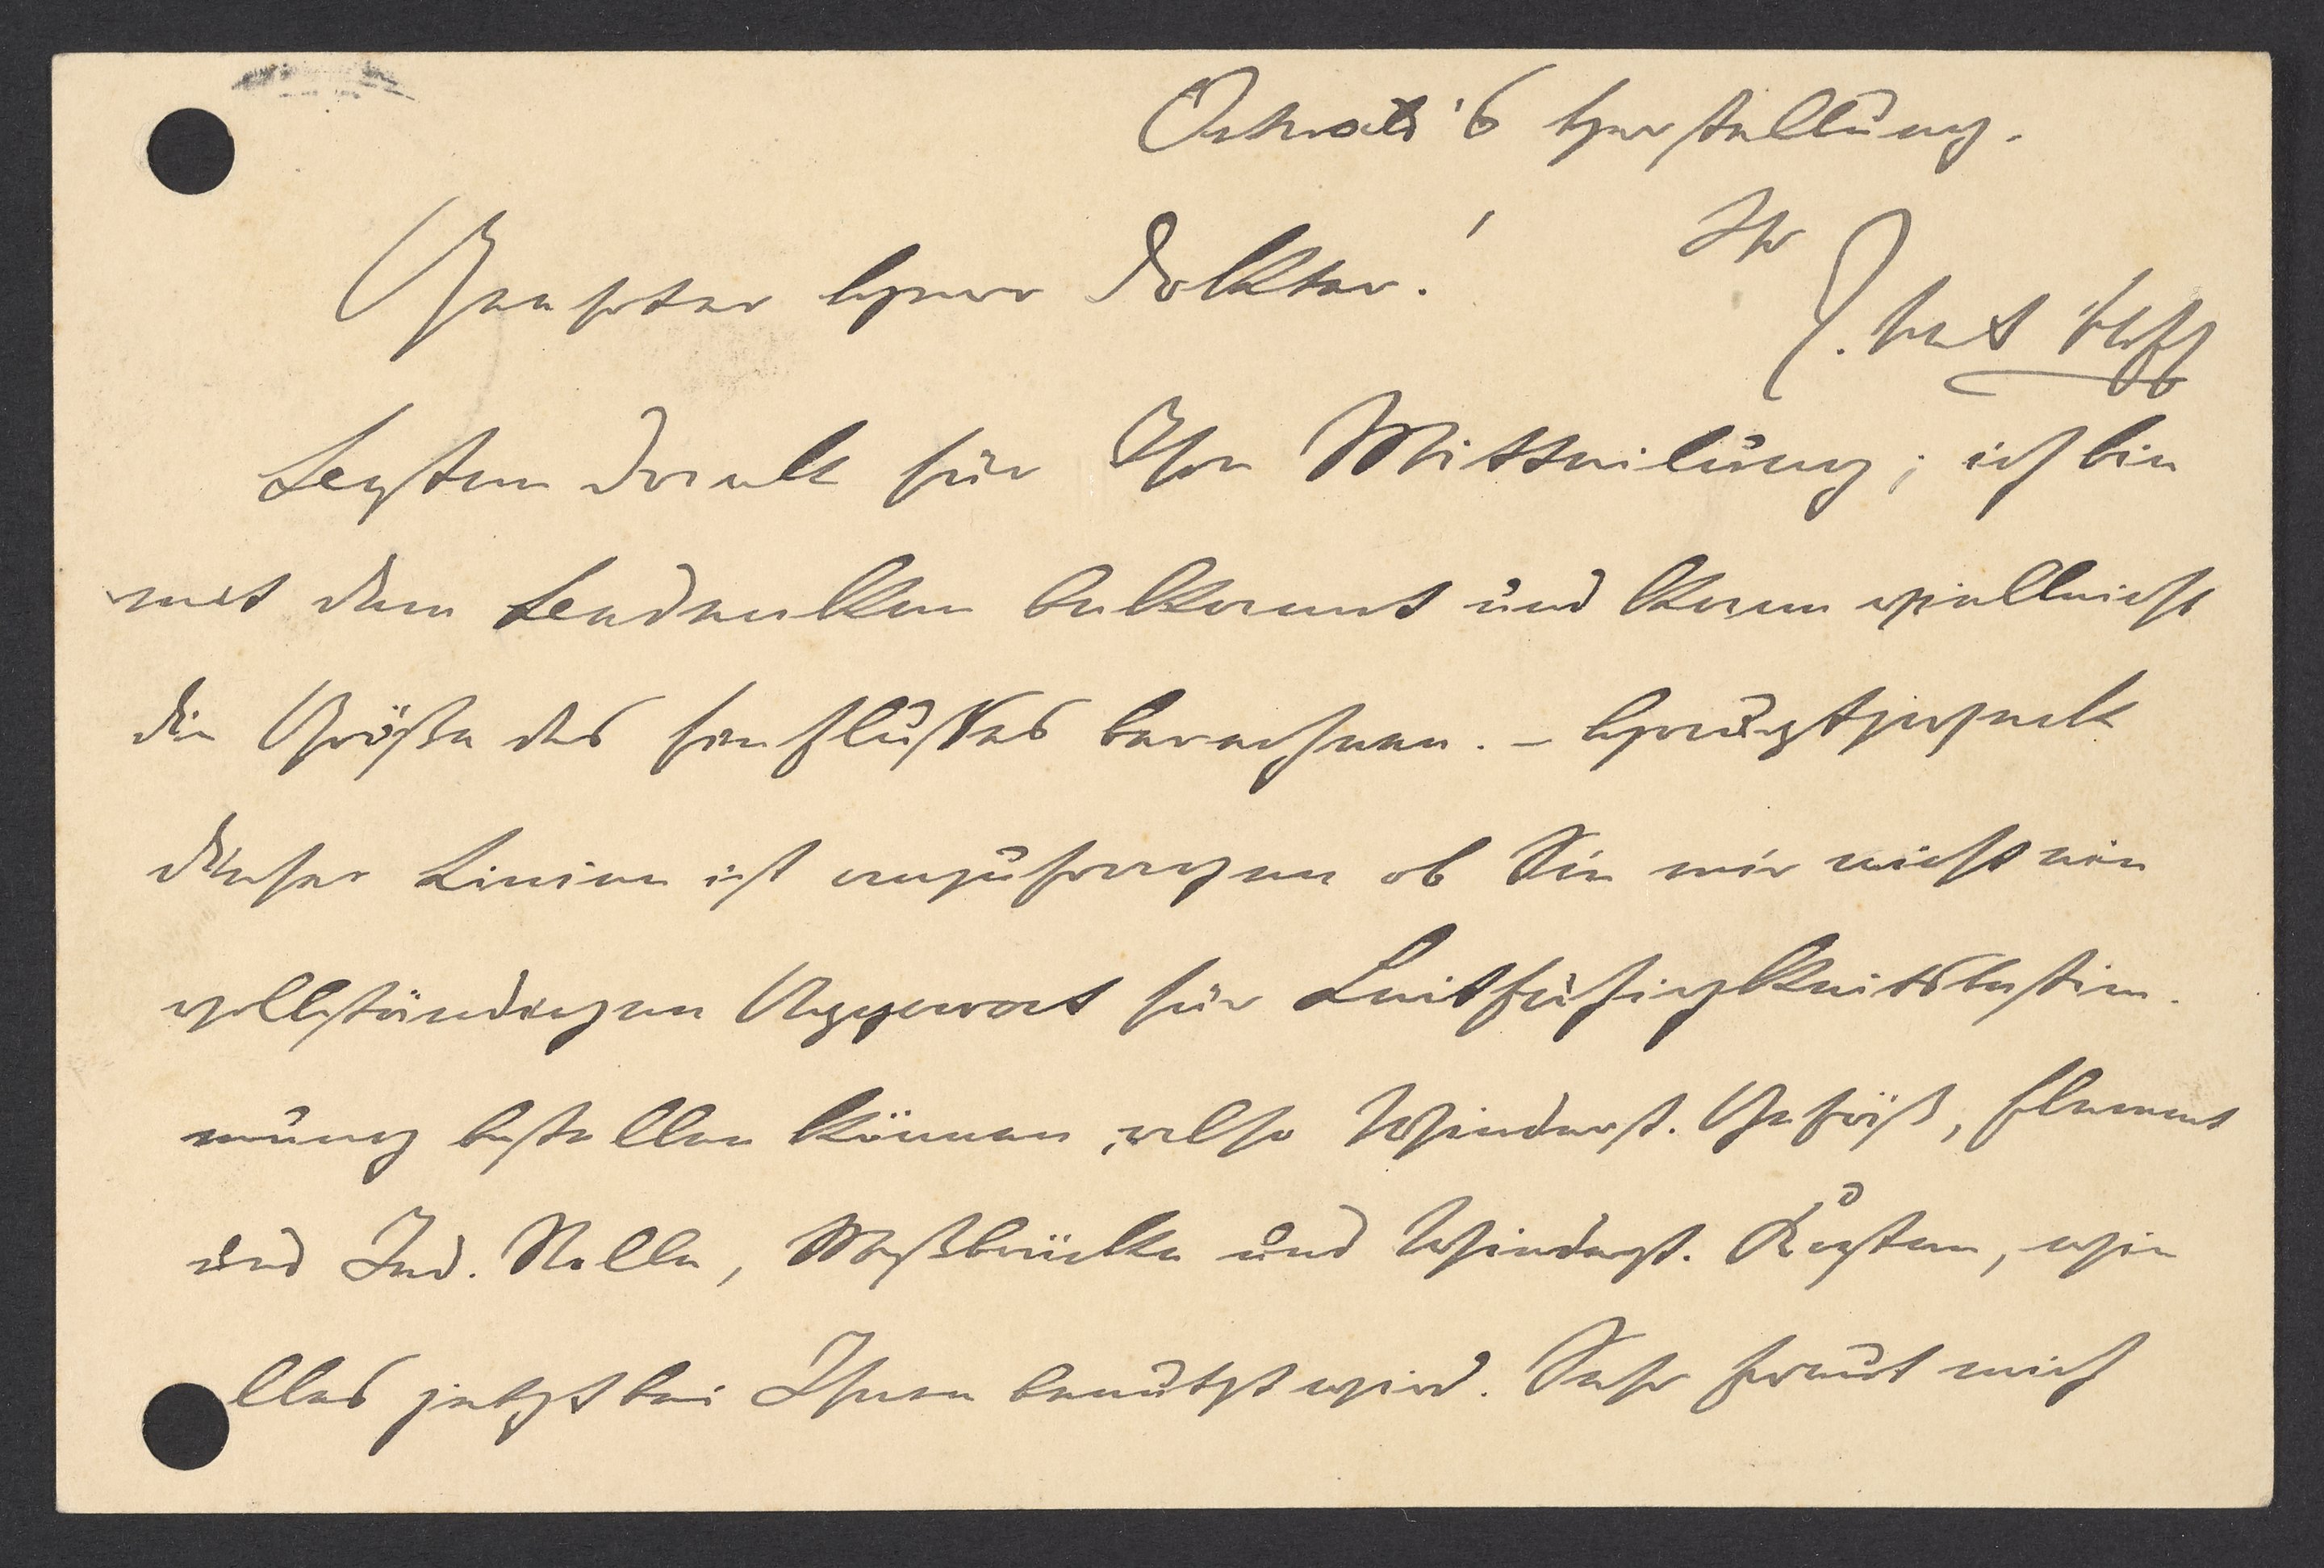 Ostwald's Herstellung.
Geehrter Herr Doktor!
Ihr
J. H. van 't Hoff
Besten Dank für Ihre Mitteilung; ich bin
mit dem Bedenken bekannt und kann vielleicht
die Größe des Einflußes berechnen. – Hauptzweck
dieser Linien ist anzufragen ob Sie mir nicht ein
vollständigen Apparat für Leitfähigkeitsbestim-
mung bestellen können, also Widerst. Gefäß, Element
und Ind. Rolle, Meßbrücke und Widerst. Kasten, wie
alles jetzt bei Ihnen benutzt wird. Sehr freut mich